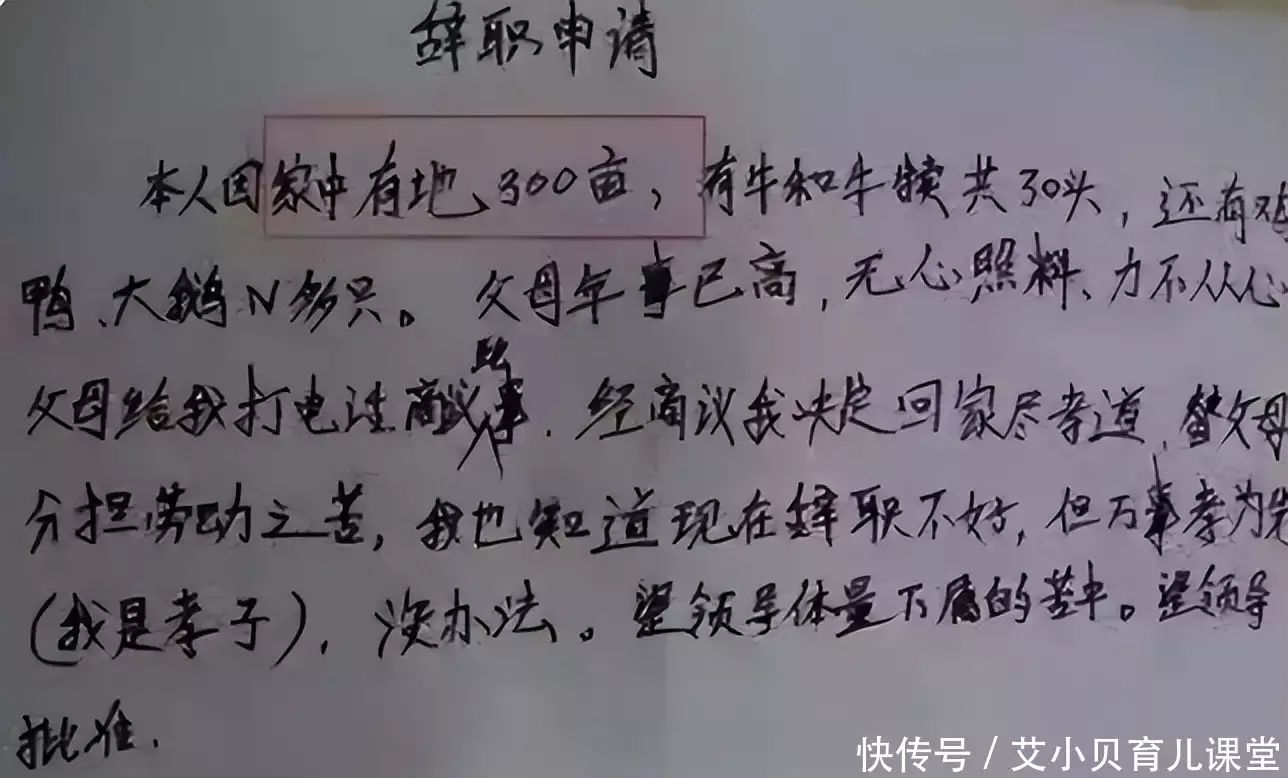 辞职申请
本人因家中有地300亩，有牛和牛犊共30头，还有鸡
鸭、大鹅N多只。父母年事已高，无心照料、力不从心
父母给我打电话商议此事．经商议我决定回家尽孝道，替父母
分担劳动之苦，我也知道现在辞职不好，但万事孝为先
(我是孝子)，没办法。望领导体量下属的苦中。望领导
批准．
快传号 / 艾小贝育儿课堂